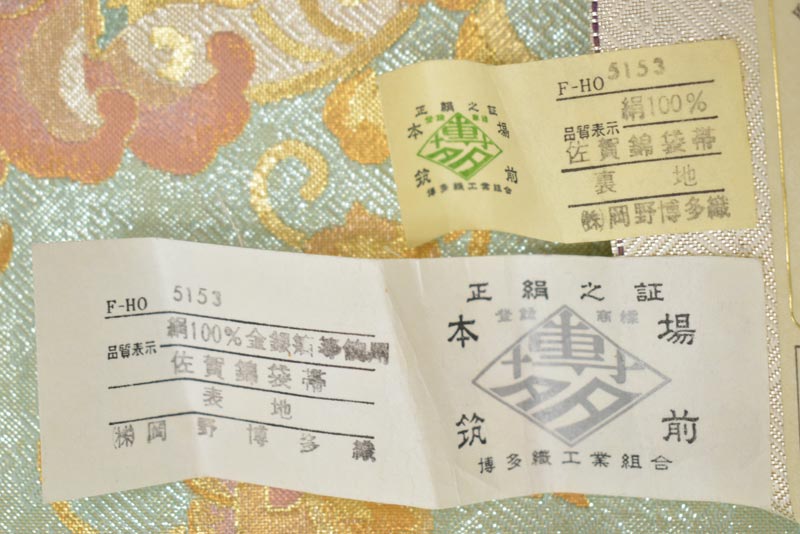 F-HO 5153
絹100%
品質表示
佐賀錦袋帯
裏地
㈱岡野博多織
正絹之証
登録商標
本場
筑前
博多
博多織工業組合
F-HO 5153
絹100%金銀箔等使用
品質表示
佐賀錦袋帯
表地
㈱岡野博多織
正絹之証
登録商標
本場
筑前
博多
博多織工業組合